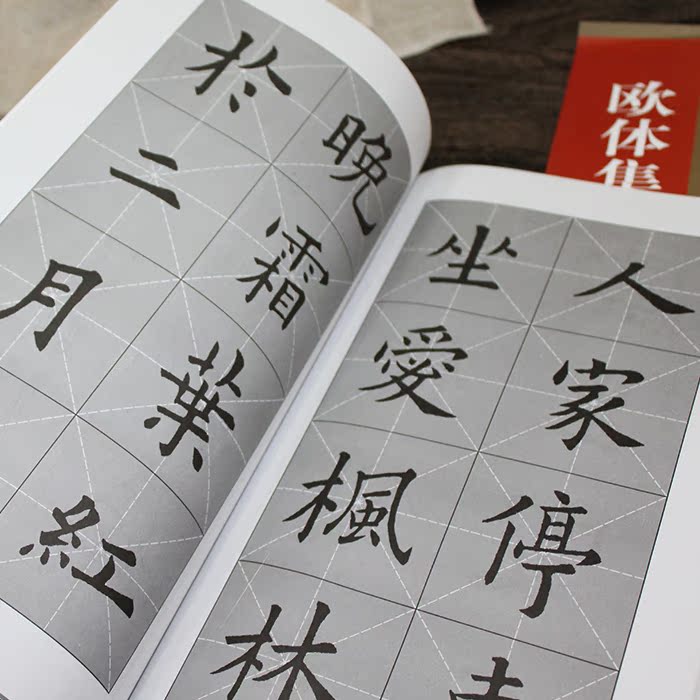 人家停
坐愛楓林
晚霜葉紅
於二月
欧体集